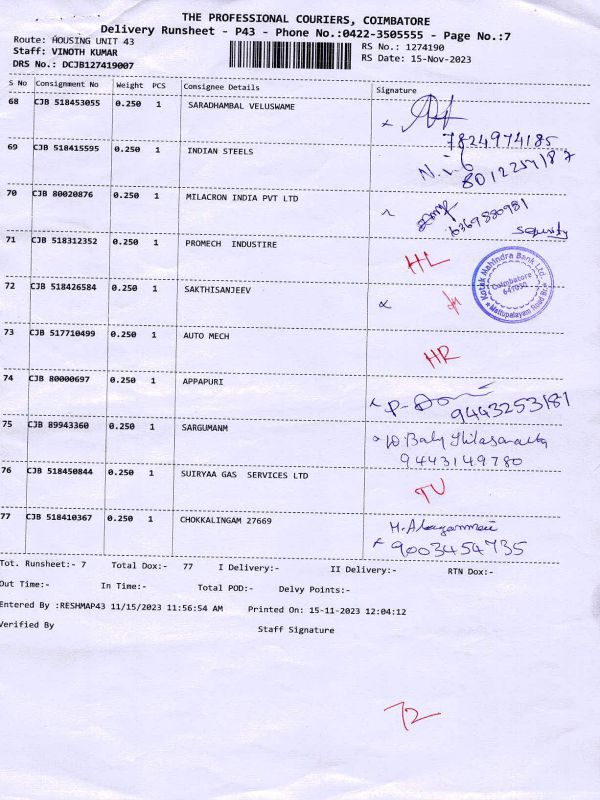 THE PROFESSIONAL COURIERS, COIMBATORE
Delivery Runsheet - P43 - Phone No.:0422-3505555 - Page No.:7
Route: HOUSING UNIT 43
RS No.: 1274190
Staff: VINOTH KUMAR
RS Date: 15-Nov-2023
DRS No.: DCJB127419007
S No Consignment No Weight PCS Consignee Details Signature
68 CJB 518453055 0.250 1 SARADHAMBAL VELUSWAME
7824974185
69 CJB 518415595 0.250 1 INDIAN STEELS
70 CJB 80020876 0.250 1 MILACRON INDIA PVT LTD
6369880981
Security
71 CJB 518312352 0.250 1 PROMECH INDUSTIRE HL
Kotak Mahindra Bank Ltd.
Coimbatore
641030
Mettupalayam Road Br.
72 CJB 518426584 0.250 1 SAKTHISANJEEV
73 CJB 517710499 0.250 1 AUTO MECH HR
74 CJB 80000697 0.250 1 APPAPURI
9443253181
75 CJB 89943360 0.250 1 SARGUMANM
9443149780
76 CJB 518450844 0.250 1 SUIRYAA GAS SERVICES LTD TU
77 CJB 518410367 0.250 1 CHOKKALINGAM 27669
9003454735
Tot. Runsheet:- 7 Total Dox:- 77 I Delivery:- II Delivery:- RTN Dox:-
Out Time:- In Time:- Total POD:- Delvy Points:-
Entered By :RESHMAP43 11/15/2023 11:56:54 AM Printed On: 15-11-2023 12:04:12
Verified By Staff Signature
72